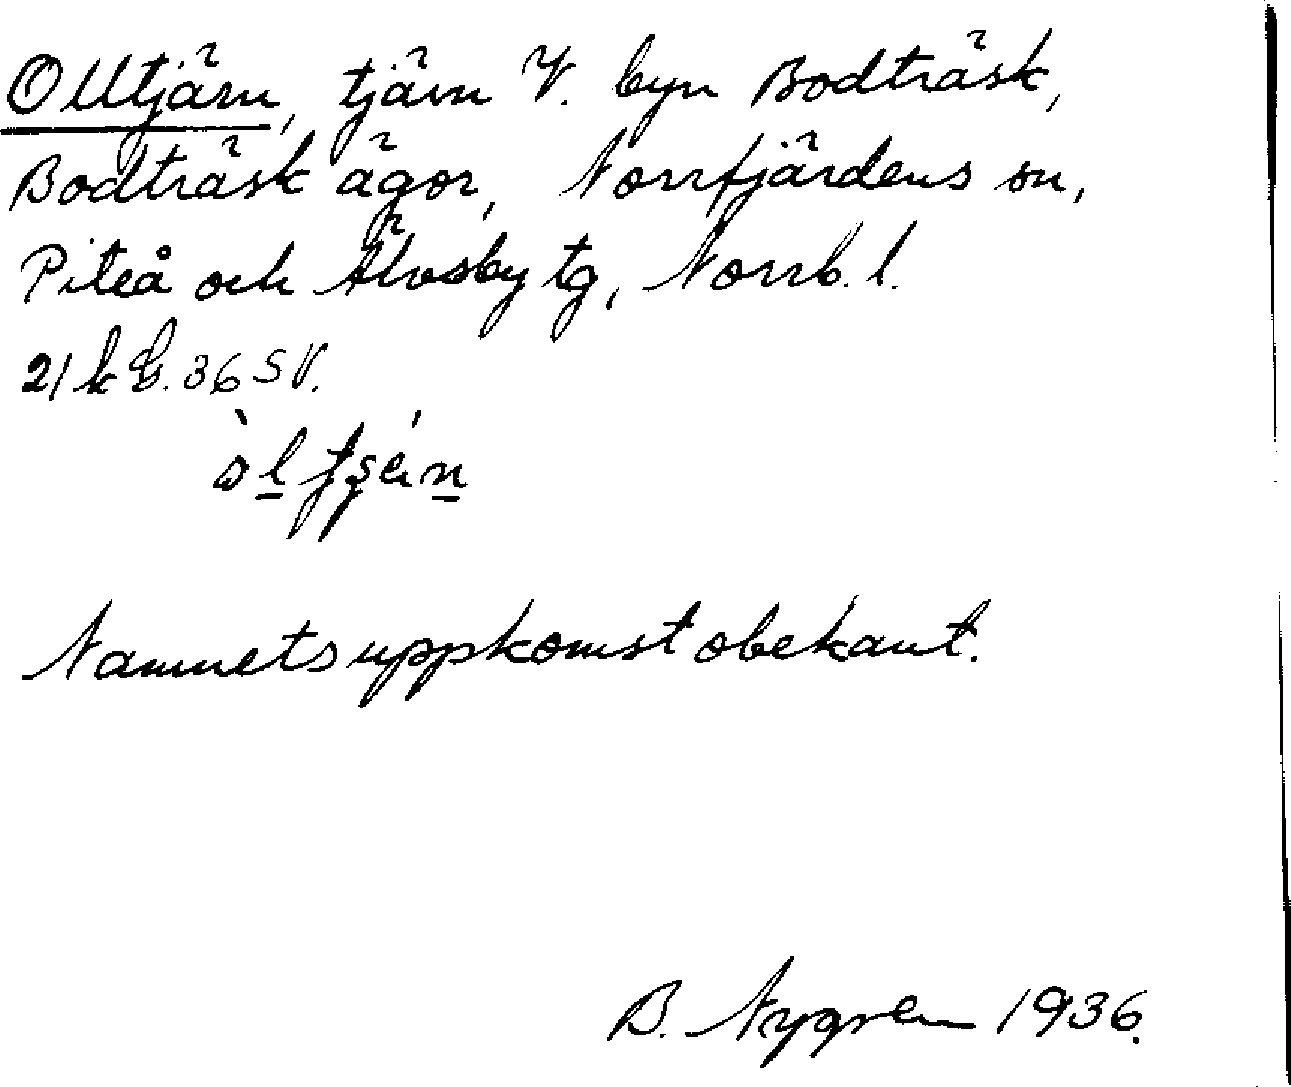 Olltjärn, tjärn V. byn Bodträsk,
Bodträsk ägor, Norrfjärdens sn,
Piteå och Älvsby tg, Norrb. l.
21 k 36 SV.
Namnets uppkomst obekant.
B. Nygren 1936.